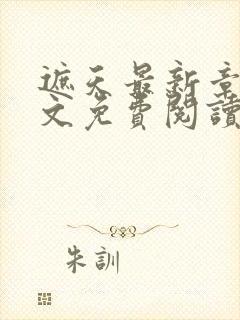 遮天最新章
文免費閱讀
朱訓